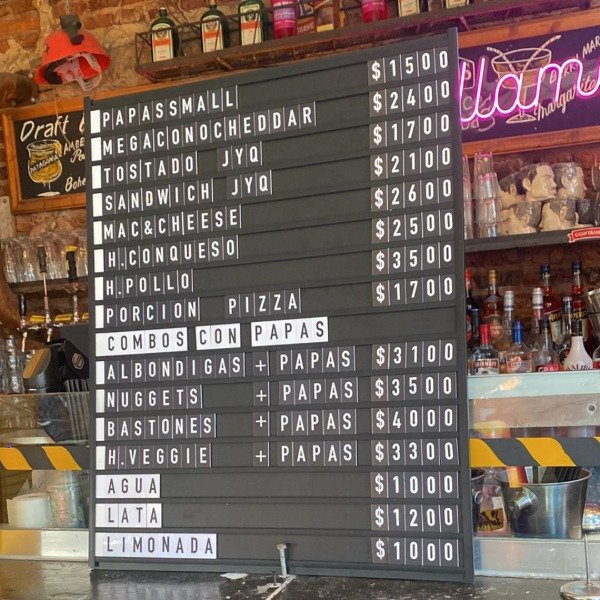 PAPASSMALL $1500
MEGACONOCHEDDAR $2400
TOSTADO JYQ $1700
SANDWICH JYQ $2100
MAC&CHEESE $2600
H.CONQUESO $2500
H.POLLO $3500
PORCION PIZZA $1700
COMBOS CON PAPAS
ALBONDIGAS + PAPAS $3100
NUGGETS + PAPAS $3500
BASTONES + PAPAS $4000
H.VEGGIE + PAPAS $3300
AGUA $1000
LATA $1200
LIMONADA $1000
Draft
PATAGONIA
llam
Margarita